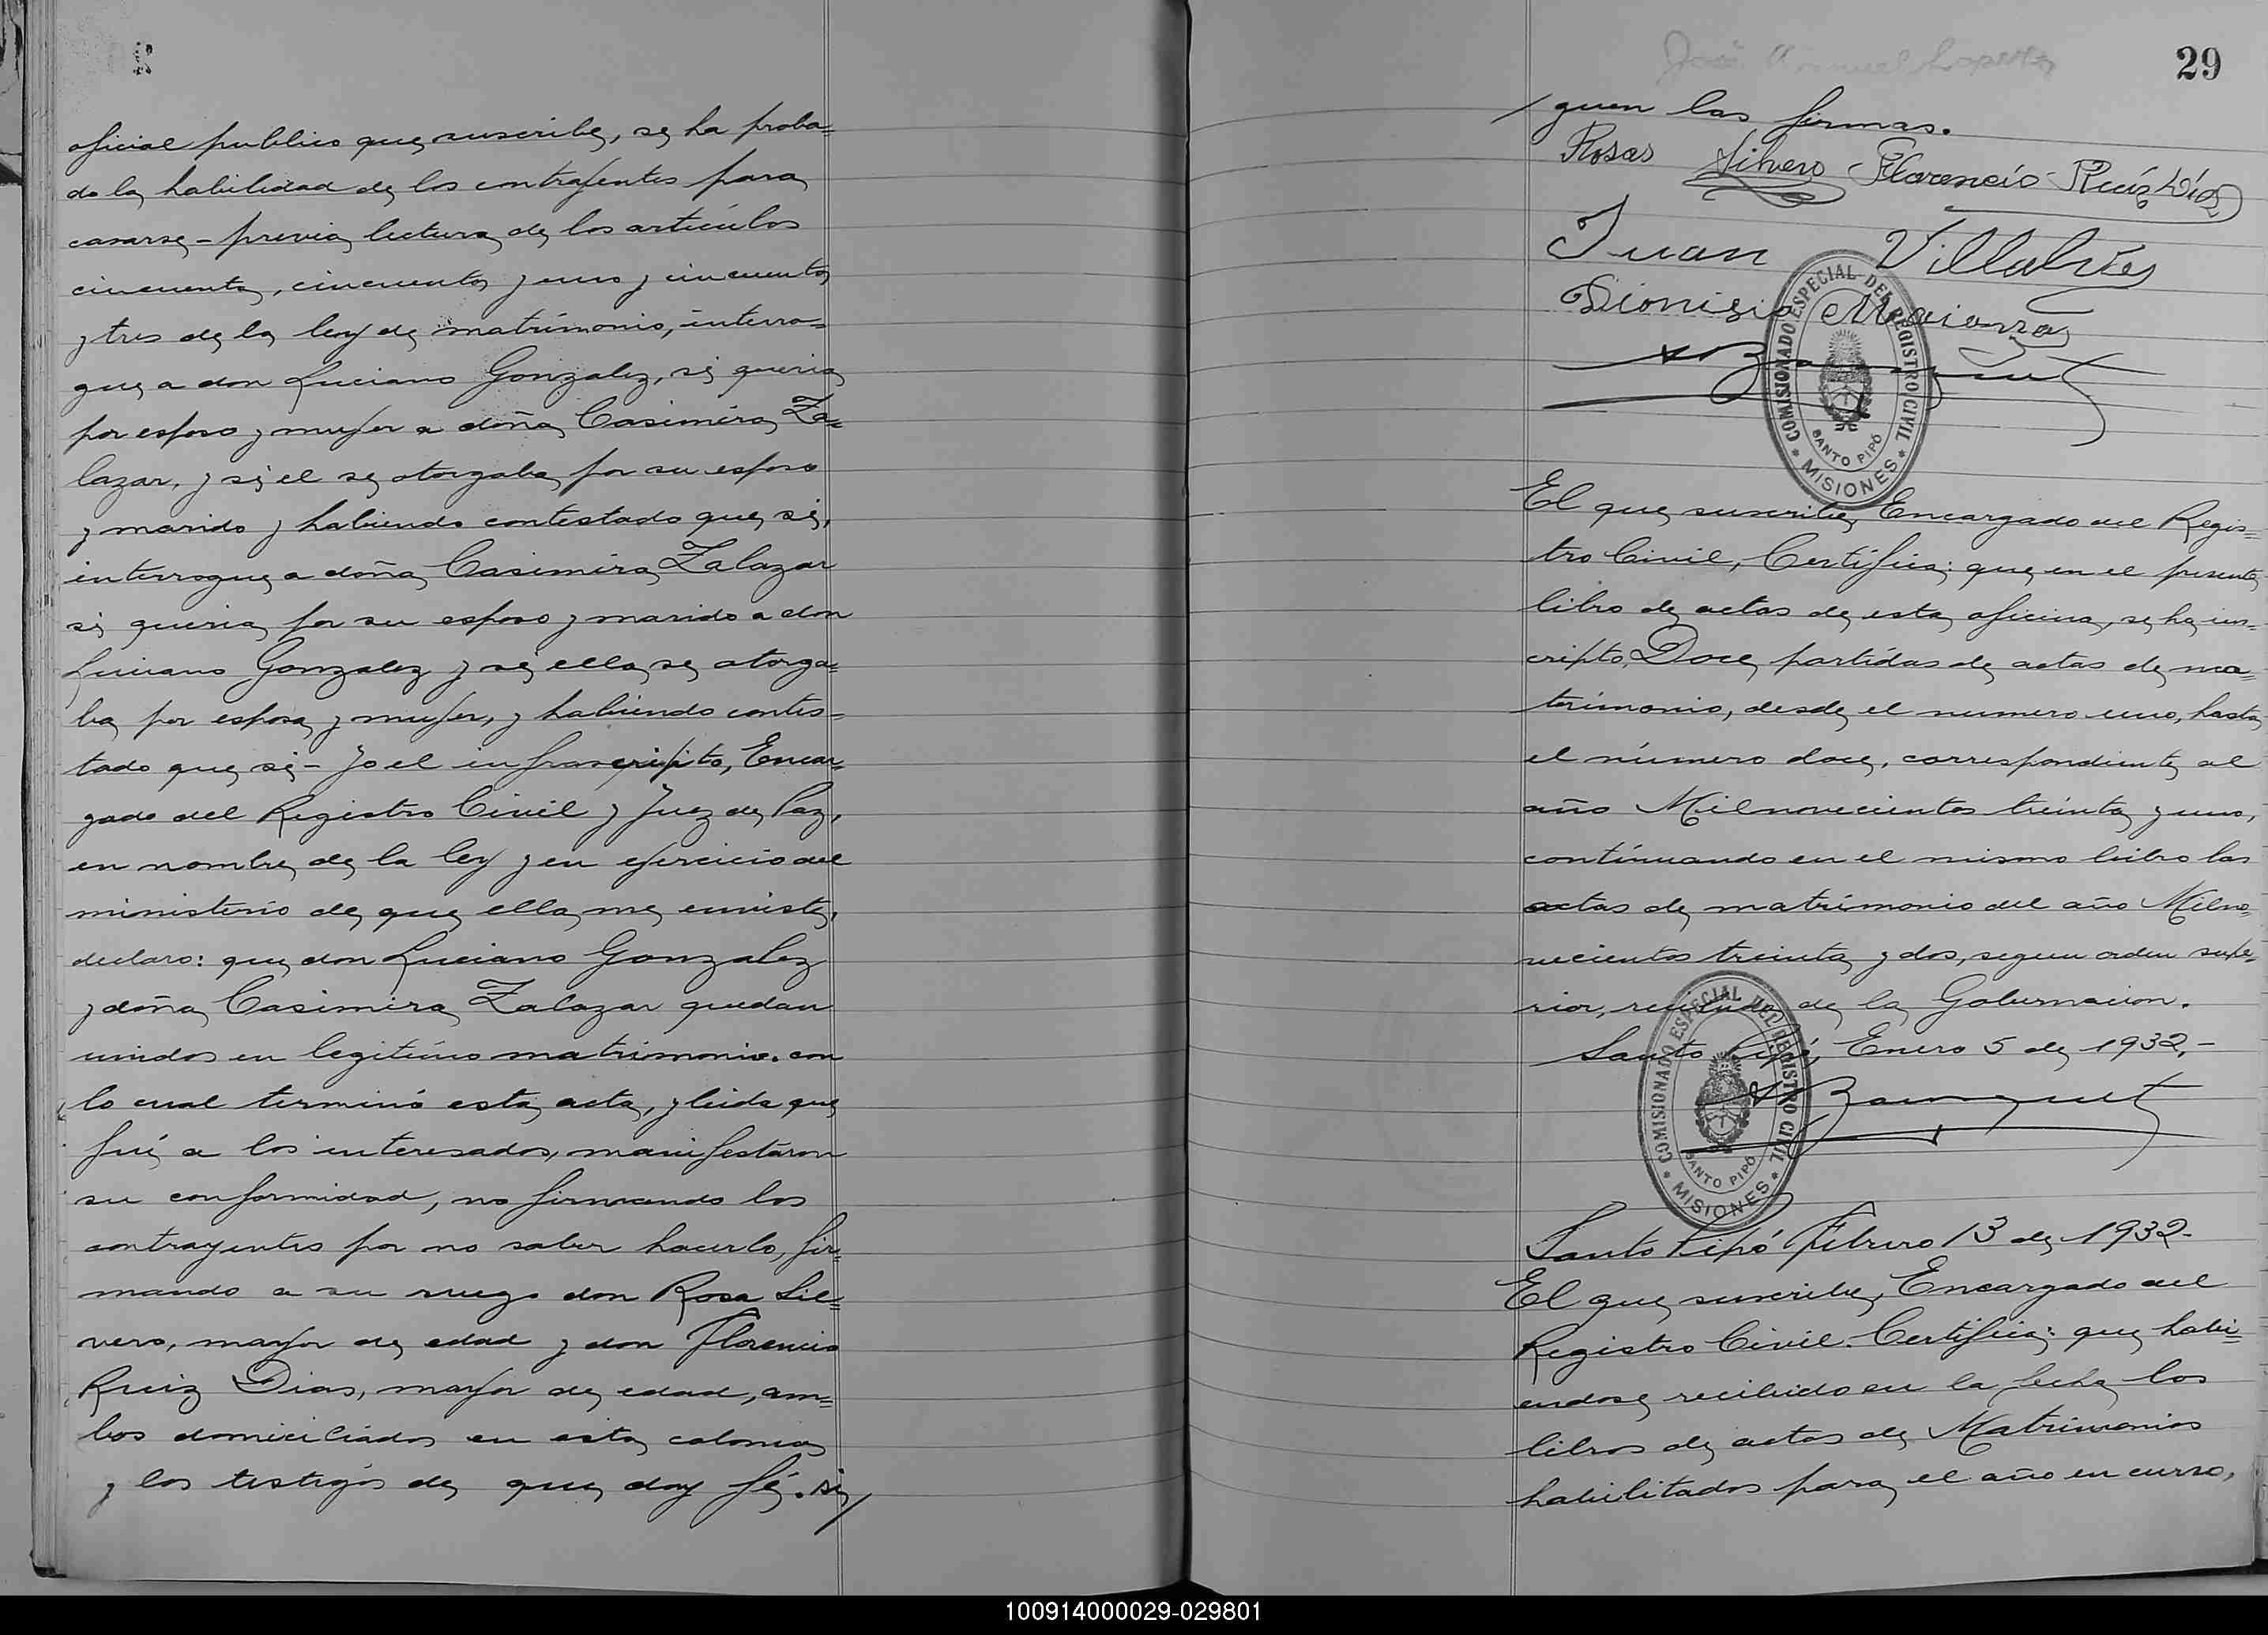 oficial publico que suscribe, se ha proba=
do la habilidad de los contrayentes para
casarse - previa lectura de los artículos
cincuenta, cincuenta y uno y cincuenta
y tres de la ley de matrimonio, interro=
gue a don Luciano Gonzalez, si queria
por esposa y mujer a doña Casimira Za=
lazar, y si el se otorgaba por su esposo
y marido y habiendo contestado que si,
interrogue a doña Casimira Zalazar
si queria por su esposo y marido a don
Luciano Gonzalez y si ella se otorga=
ba por esposa y mujer, y habiendo contes=
tado que si - Yo el infrascripto, Encar=
gado del Registro Civil y Juez de Paz,
en nombre de la ley y en ejercicio del
ministerio de que ella me enviste,
declaro: que don Luciano Gonzalez
y doña Casimira Zalazar quedan
unidos en legitimo matrimonio. con
lo cual terminó esta acta, y leida que
fué a los interesados, manifestaron
su conformidad, no firmando los
contrayentes por no saber hacerlo, fir=
mando a su ruego don Rosa Sil=
vero, mayor de edad y don Florencio
Ruiz Dias, mayor de edad, am=
bos domiciliados en esta colonia
y los testigos de que doy fé. si/
29
/guen las firmas.
Rosas Silvero - Florencio Ruíz Díaz
Juan Villalba
Dionisio
COMISIONADO ESPECIAL DEL REGISTRO CIVIL
SANTO PIPÓ
* MISIONES *
El que suscribe, Encargado del Regis=
tro Civil, Certifica; que en el presente
libro de actas de esta oficina, se ha ins=
cripto, Doce partidas de actas de ma=
trimonio, desde el numero uno, hasta
el número doce, correspondiente al
año Mil novecientos treinta y uno,
continuando en el mismo libro las
actas de matrimonio del año Milno=
vecientos treinta y dos, segun orden supe=
rior, recibida de la Gobernacion.
Santo Pipó, Enero 5 de 1932.-
COMISIONADO ESPECIAL DEL REGISTRO CIVIL
SANTO PIPÓ
* MISIONES *
Santo Pipó Febrero 13 de 1932-
El que suscribe, Encargado del
Registro Civil. Certifica: que habi=
endose recibido en la fecha los
libros de actas de Matrimonios
habilitados para el año en curso,
100914000029-029801